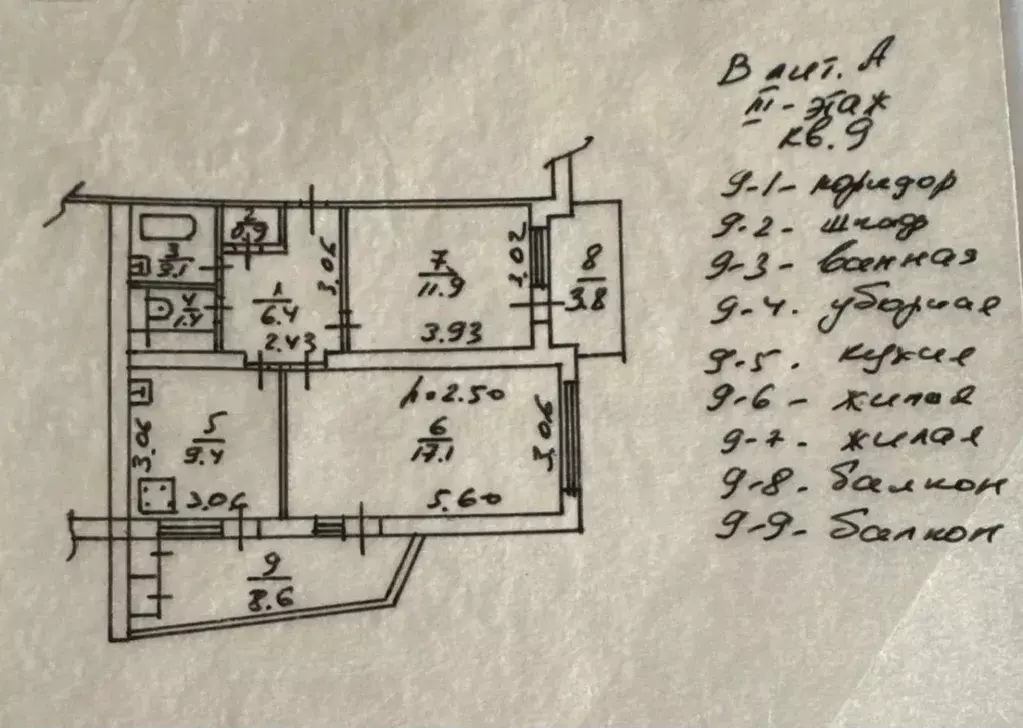 В лит. А
III - этаж
кв. 9
9-1- коридор
9-2- шкаф
9-3- ванная
9-4. уборная
9-5. кухня
9-6 - жилая
9-7- жилая
9-8- балкон
9-9- балкон
2
0.9
3
4
1
6.4
2.43
3.06
7
11.9
3.93
3.02
8
3.8
h=2.50
5
9.4
3.06
3.06
6
17.1
5.60
3.06
9
8.6